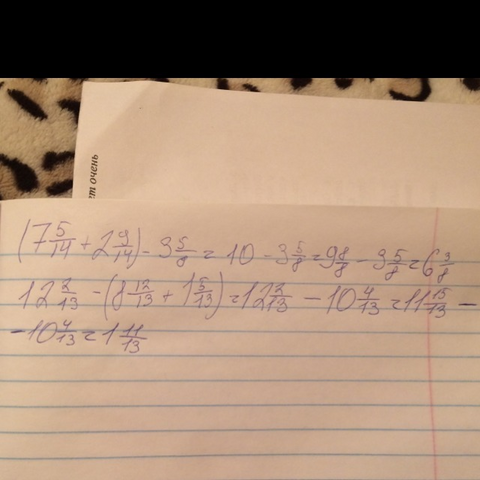 ет очень
(7 5/14 + 2 9/14) - 3 5/8 = 10 - 3 5/8 = 9 8/8 - 3 5/8 = 6 3/8
12 2/13 - (8 12/13 + 1 5/13) = 12 2/13 - 10 4/13 = 11 15/13 -
- 10 4/13 = 1 11/13